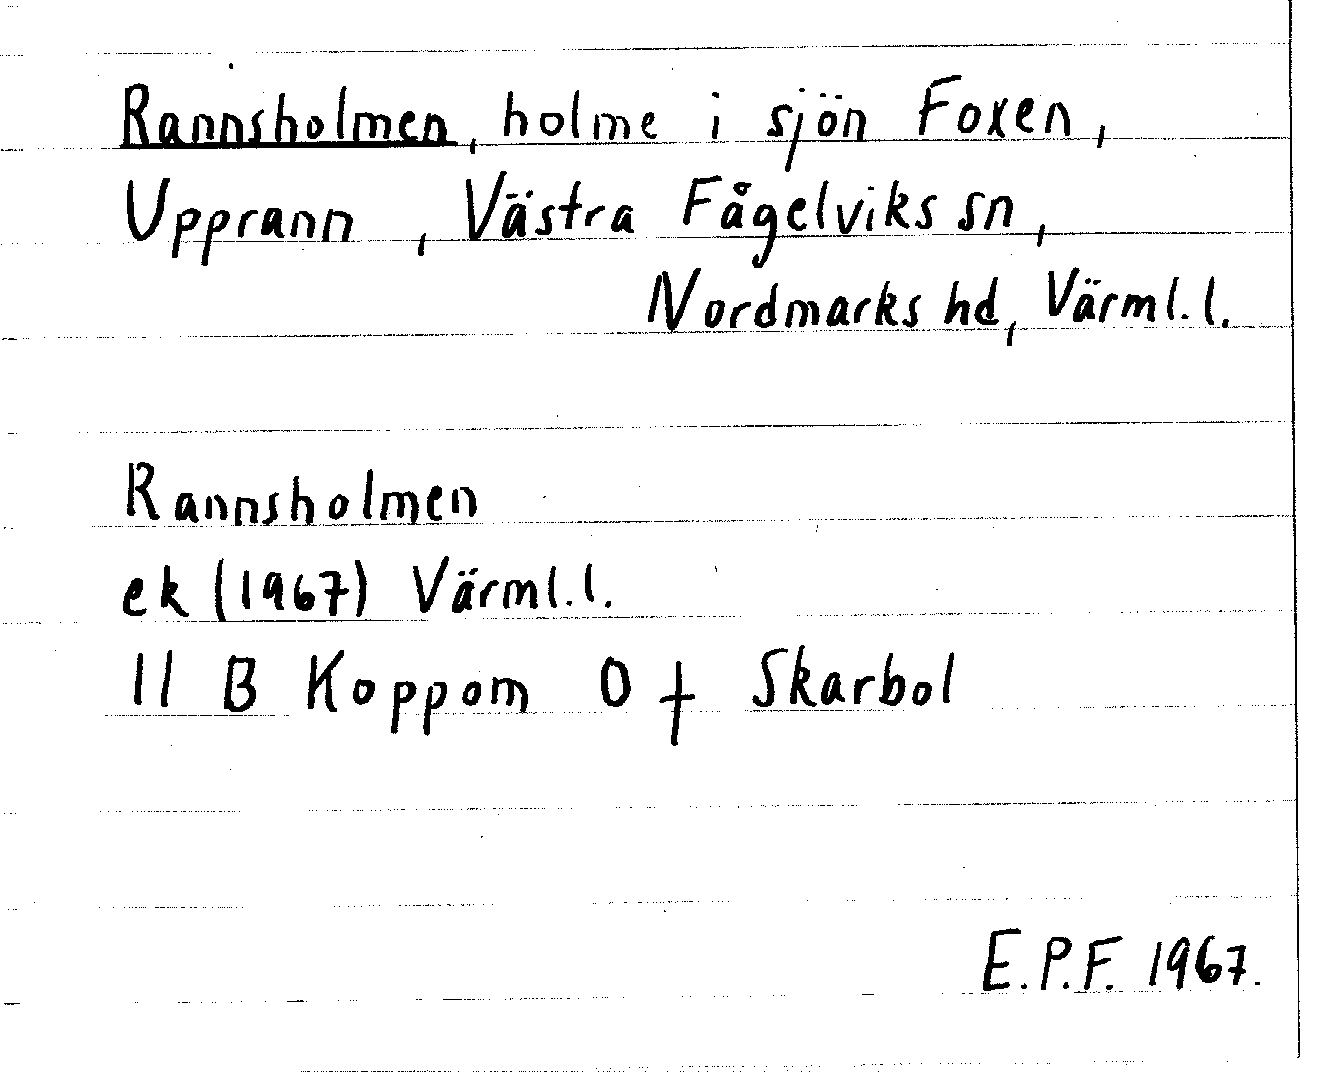 Rannsholmen, holme i sjön Foxen,
Upprann, Västra Fågelviks sn,
Nordmarks hd, Värml. l.
Rannsholmen
ek (1967) Värml. l.
11 B Koppom 0 f Skarbol
E.P.F. 1967.